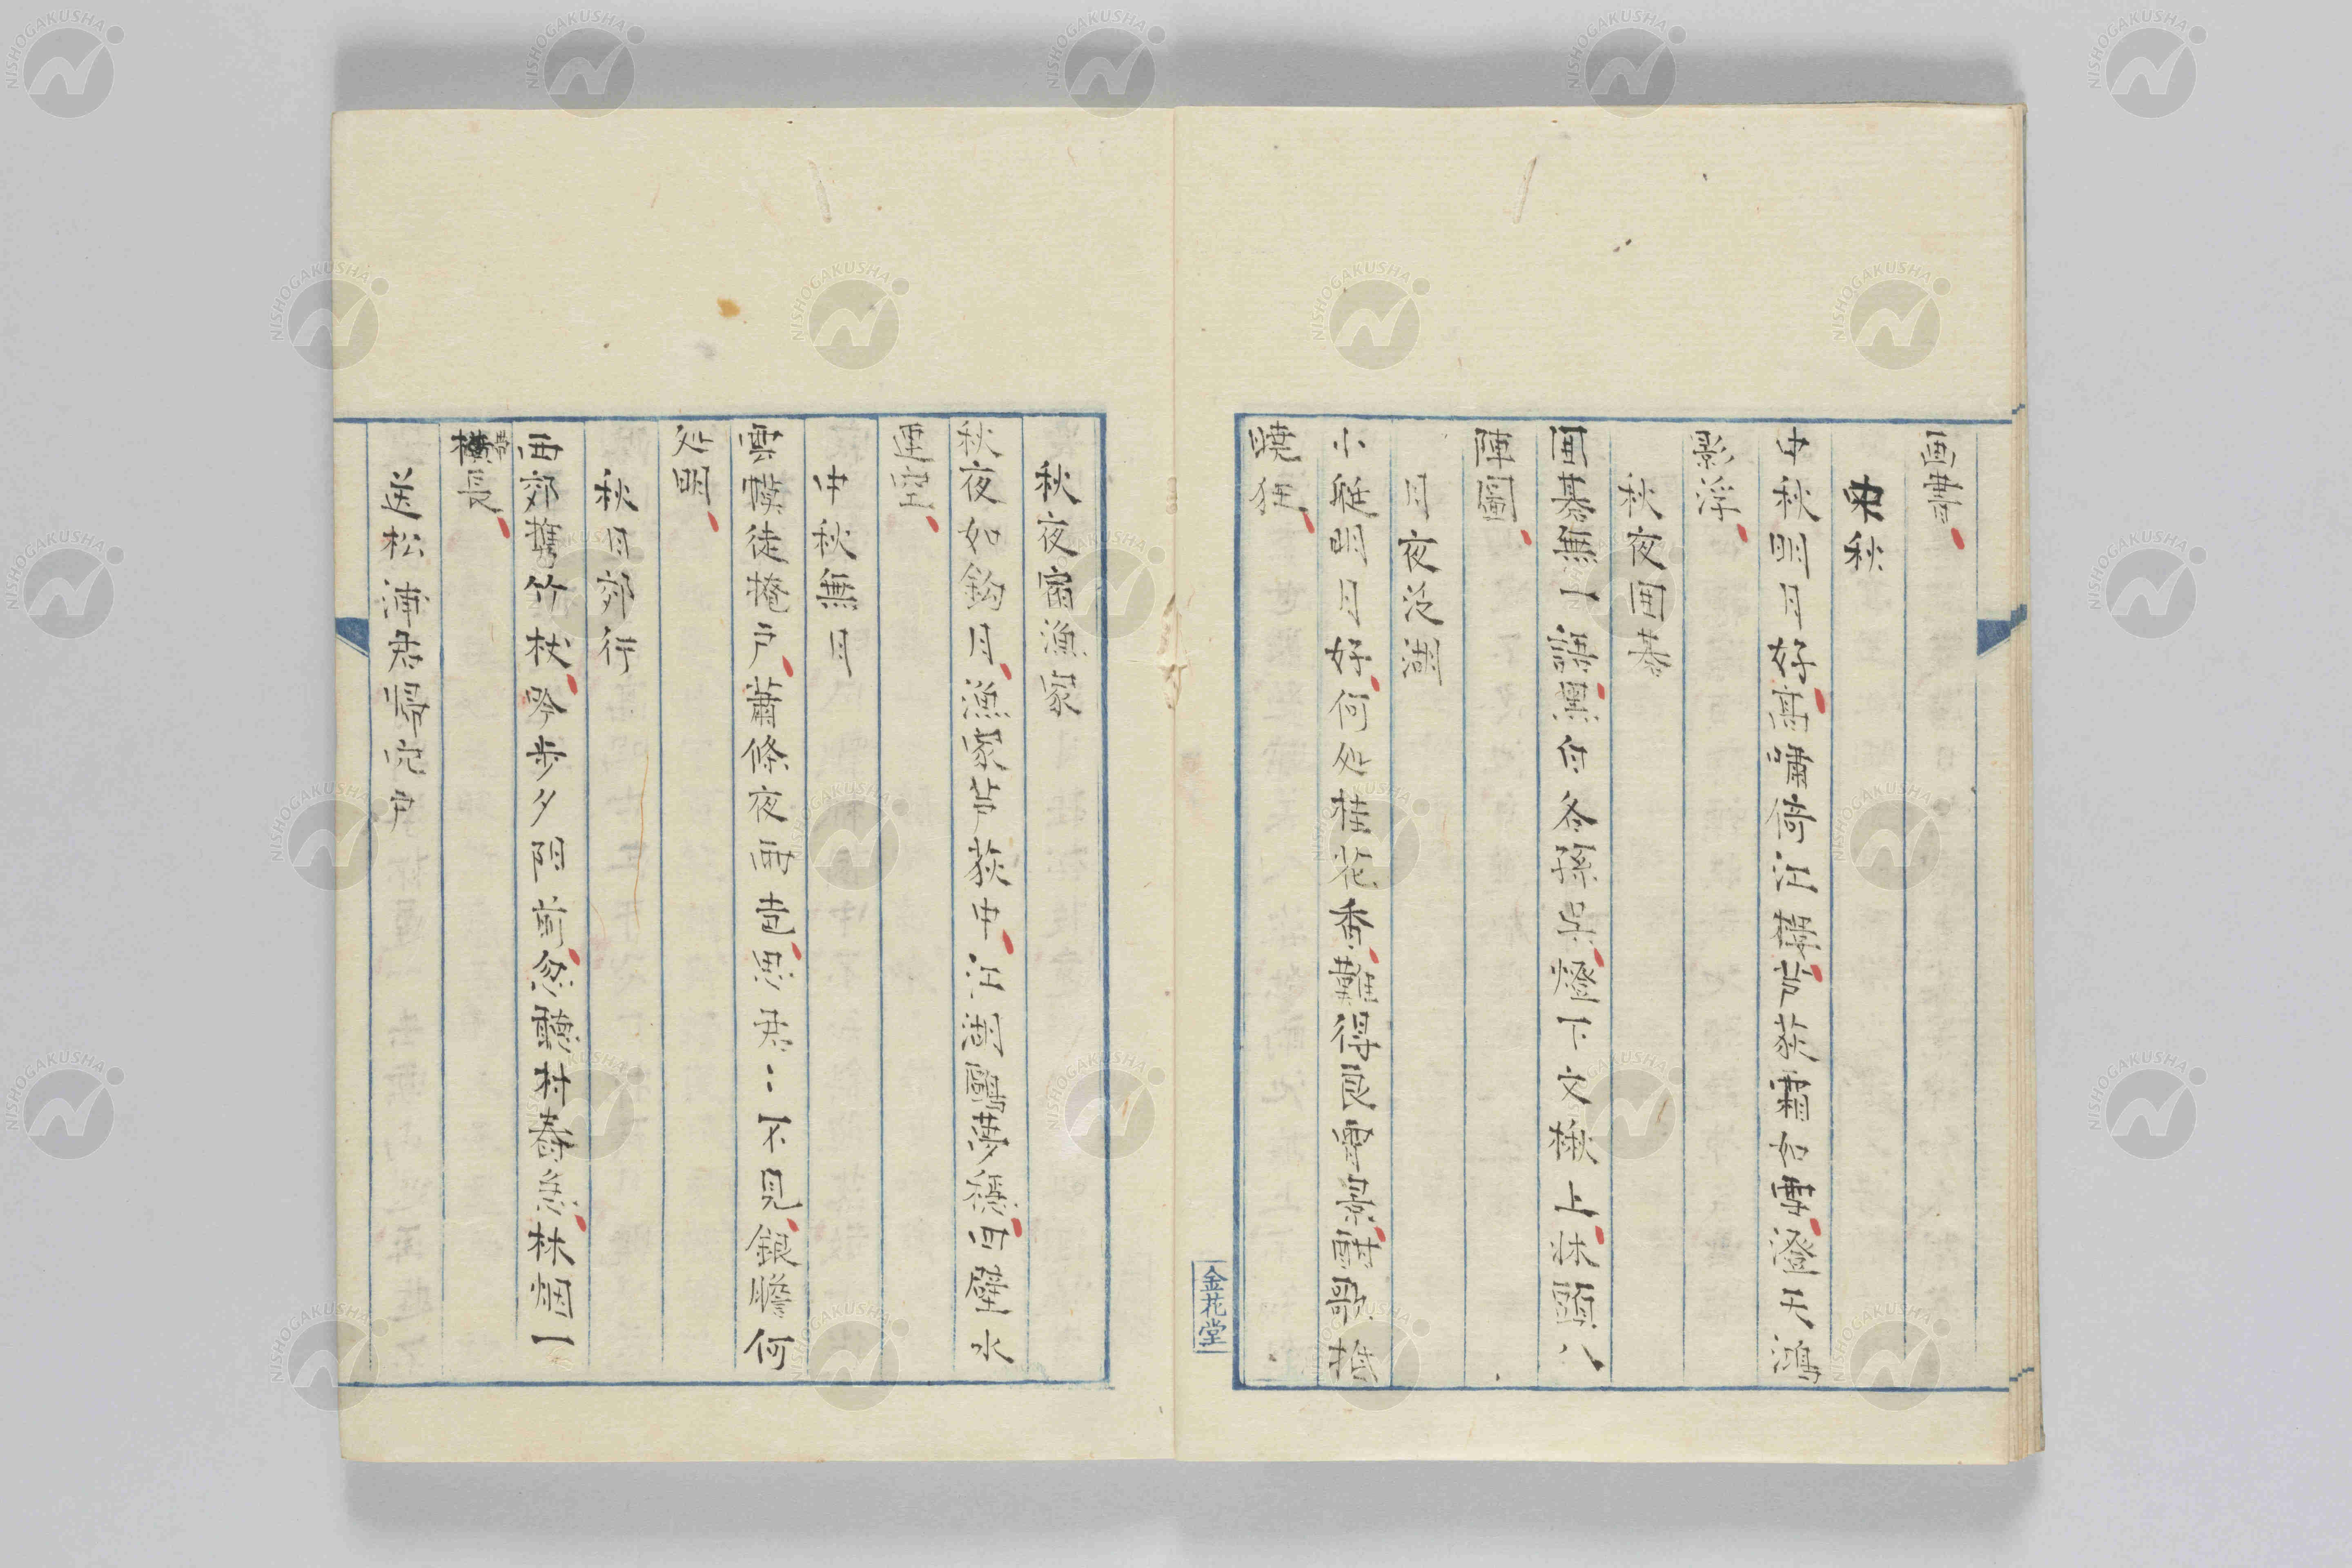 画書
中秋
中秋明月好高嘯倚江樓芦荻霜如雪澄天鴻
影浮
秋夜囲碁
囲碁無一語黒白各孫呉燈下文楸上牀頭八
陣図
月夜泛湖
小艇明月好何処桂花香難得良宵景酔歌撓
暁狂
秋夜宿漁家
秋夜如鈎月漁家芦荻中江湖鷗夢穏四壁水
連空
中秋無月
雲幙徒掩戸蕭條夜雨声思君〻不見銀蟾何
処明
秋日郊行
西郊携竹杖吟歩夕陽前忽聴村舂急林烟一
帯長
送松浦君帰定中
金花堂
NISHOGAKUSHA